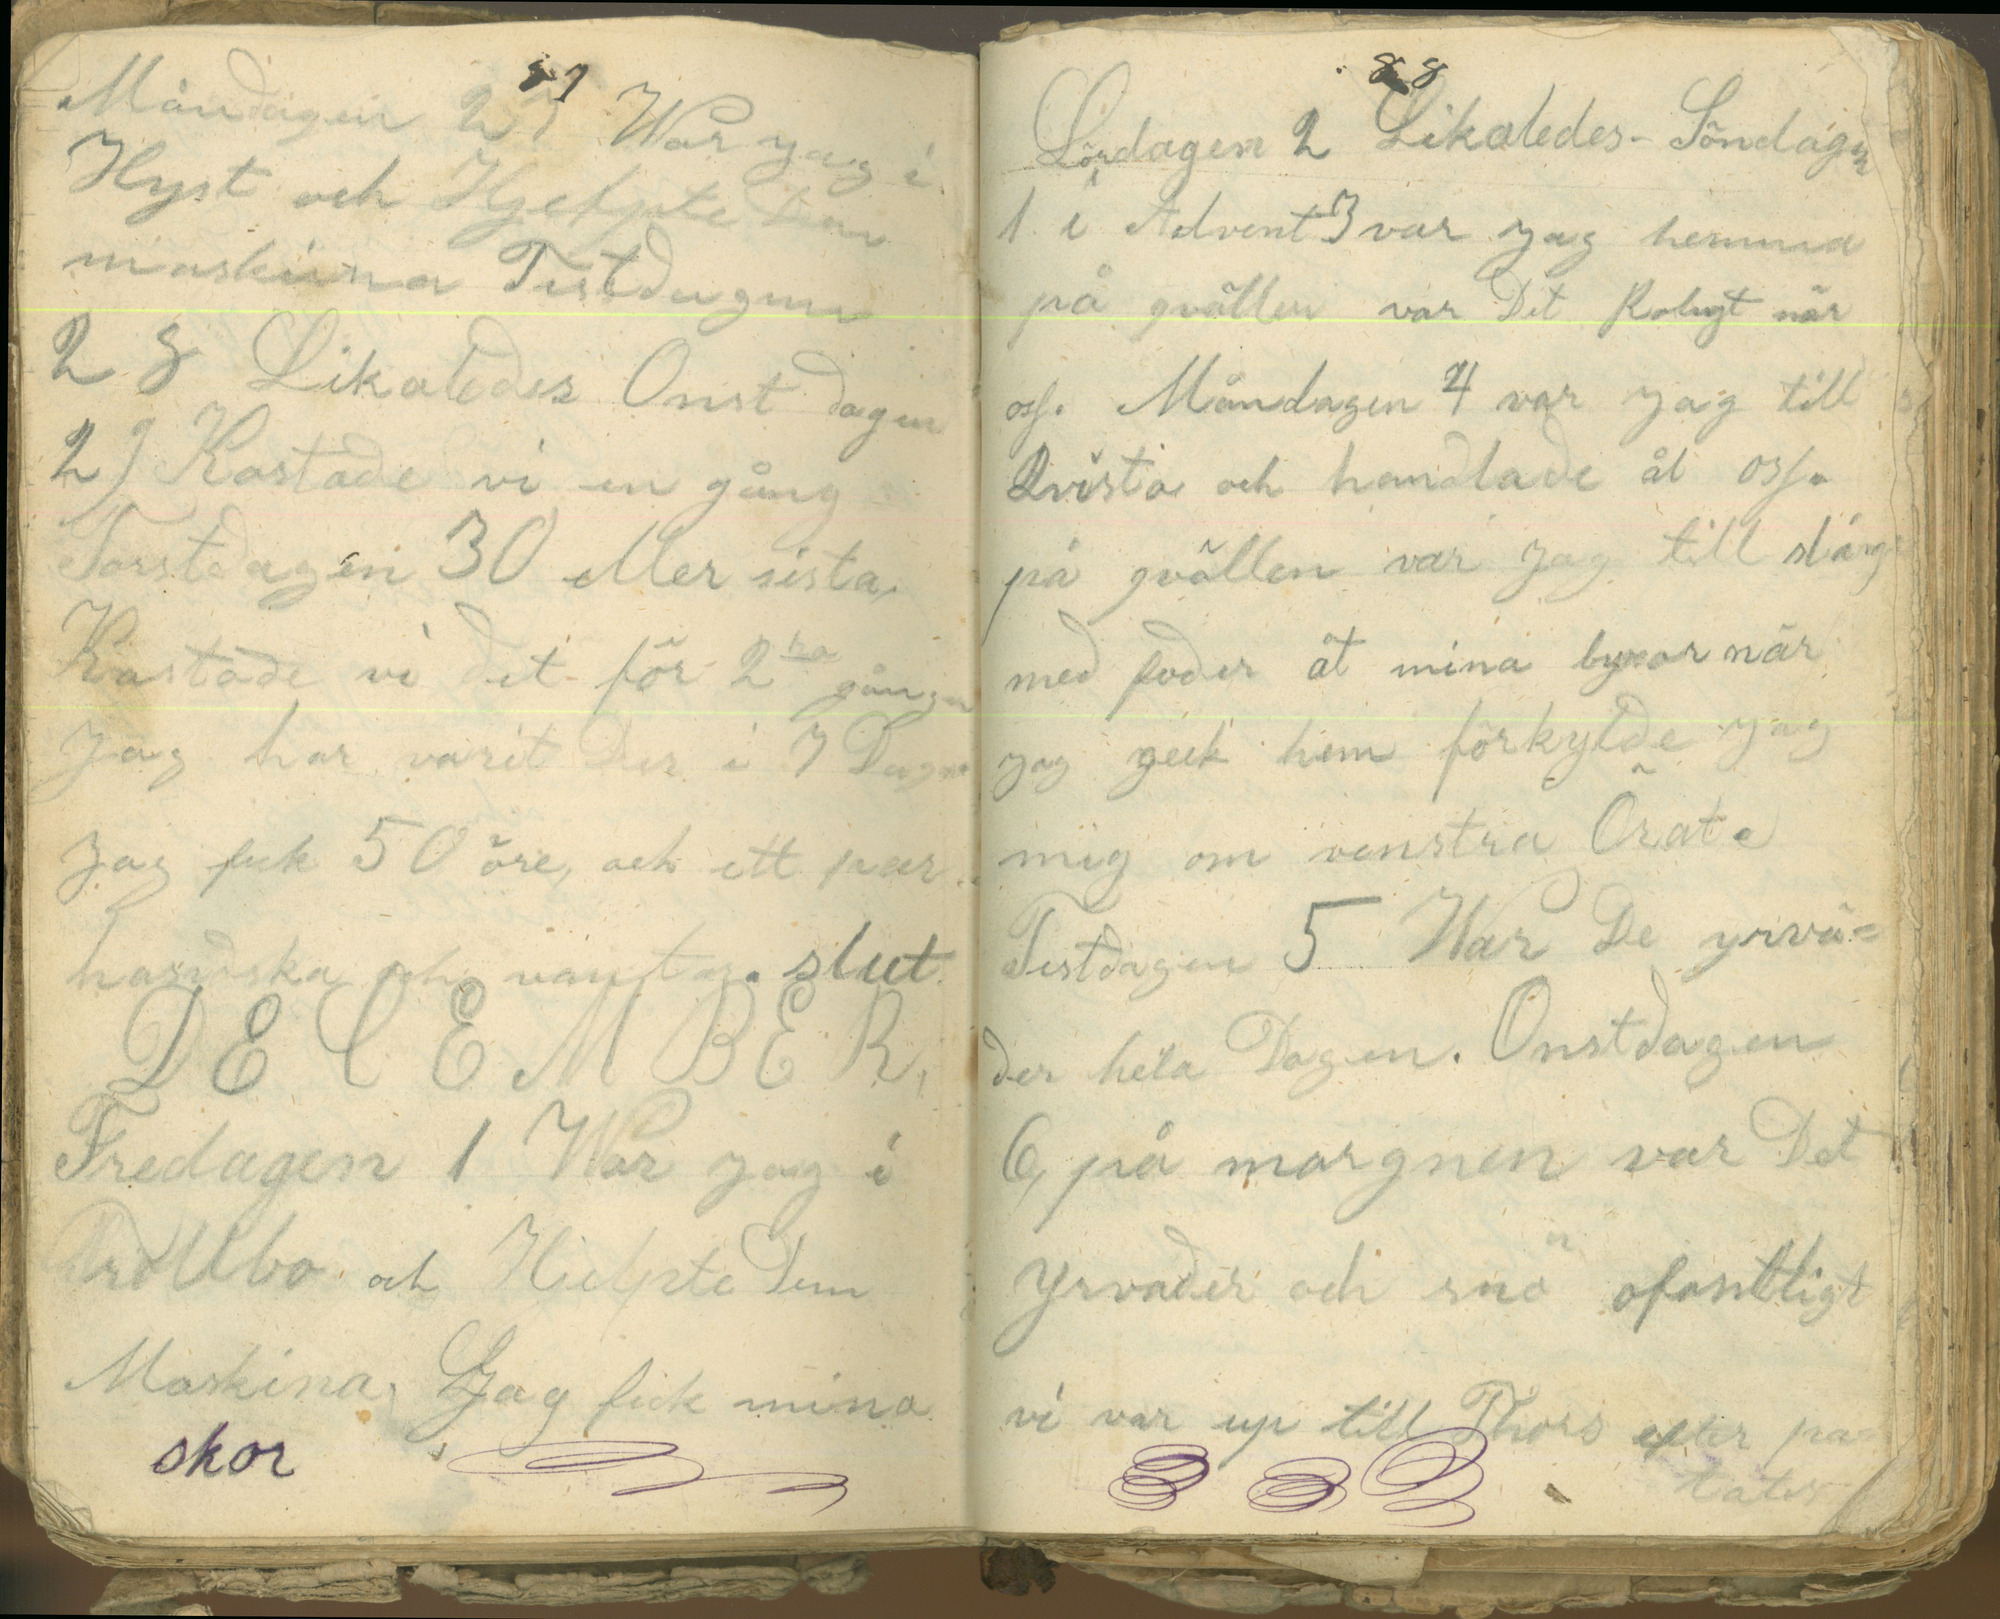 87
Måndagen 27 War jag i
Hyst och Hjelpte Dem
maskina Tistdagen
28 Likaledes Onst dagen
29 Kastade vi en gång
Torstdagen 30 eller sista
Kastade vi det för 2ra gången
Jag har varit Der i 7 Dagar
Jag fick 50 öre, och ett par
handska och vantar. slut
DECEMBER,
Fredagen 1 War jag i
Trollbo och Hielpte Dem
Maskina, Jag fick mina
skor
88
Lördagen 2 Likaledes - Söndagen
1 i Advent 3 var jag hemma
på qvällen var Det Roligt när
oss. Måndagen 4 var jag till
och handlade åt oss.
på qvällen var jag till slängs
med foder åt mina byxor när
jag geck hem förkylde jag
mig om venstra Örat.
Tistdagen 5 War De yrvä=
der hela Dagen. Onstdagen
6, på morgnen var Det
Yrvader och snö ofantligt
vi var up till Thors efter pa=
tater